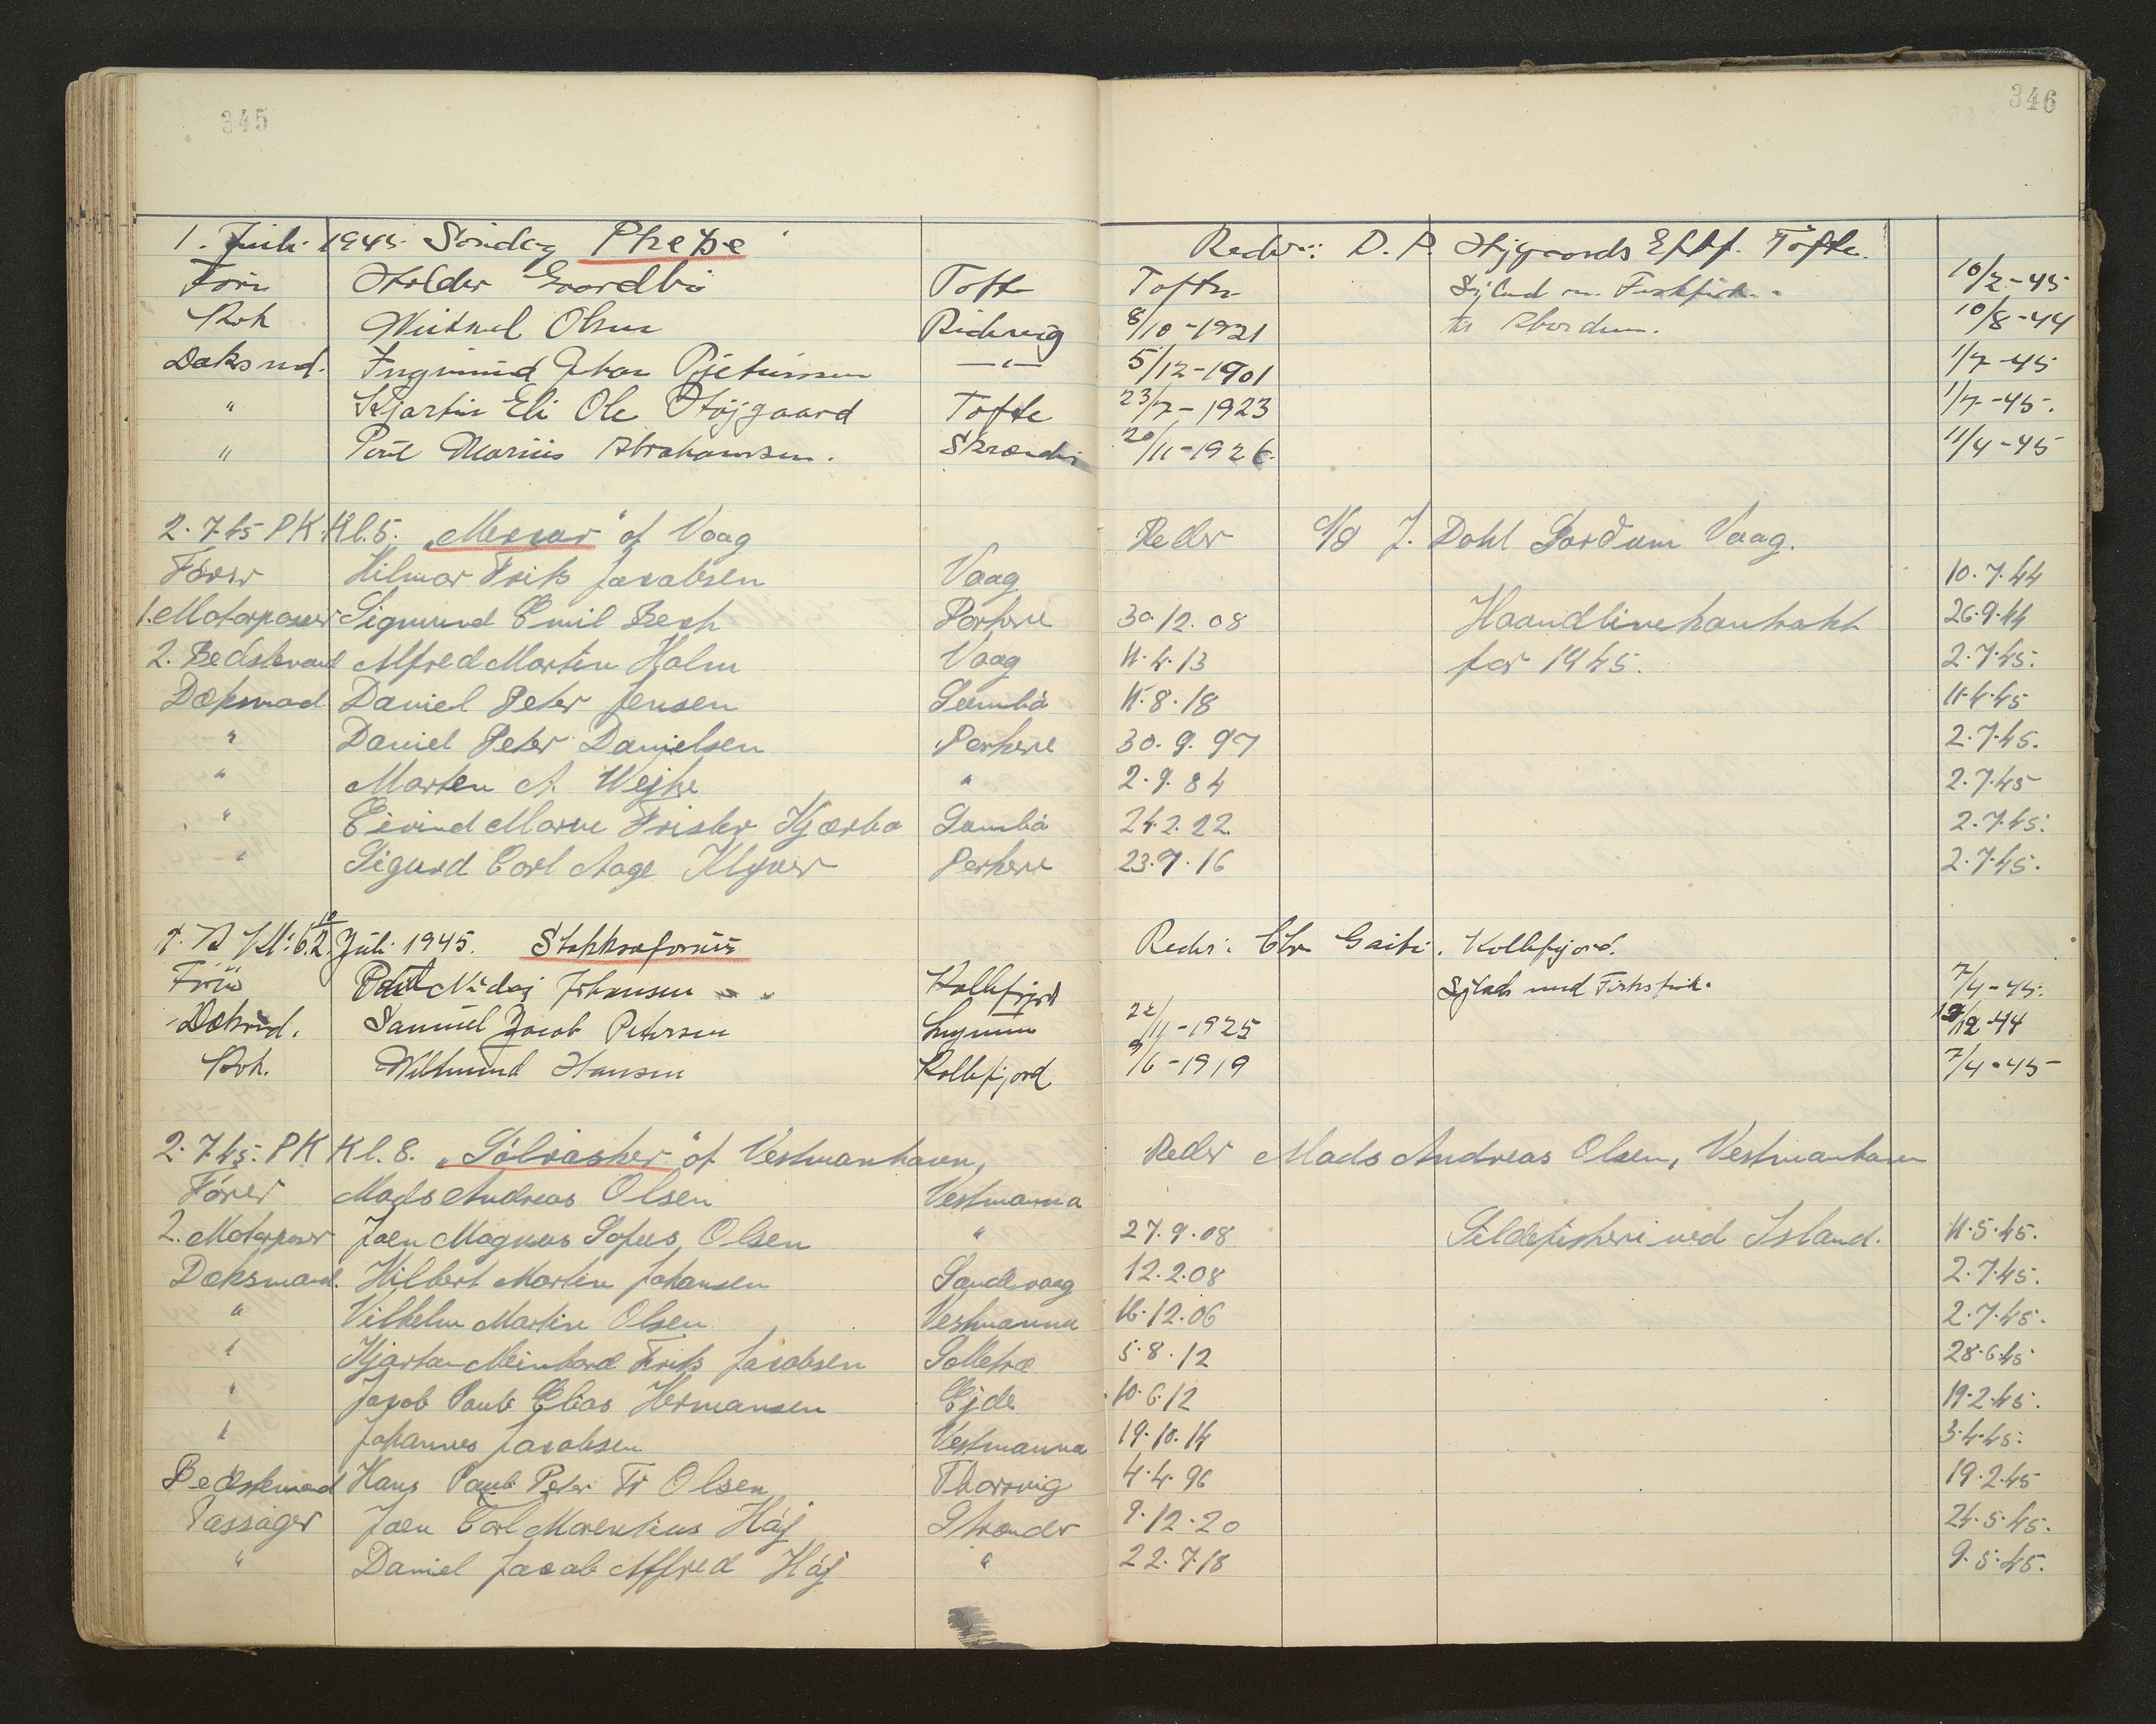 345
346
1. Juli 1945. Søndag Phebe Reder: D. P. Højgaards Eftf. Tofte.
Fører Tofte Toftir Sejlads m. Ferskfisk 10/2-45
Kok Mikkael Olsen Ridevig 8/10-1921 til Aberdeen. 10/8-44
Daksmd. Ingmund Johan Pjetursson -"- 5/12-1901 1/7-45
" Kjartin Eli Ole Højgaard Tofte 23/7-1923 1/7-45.
" Poul Marius Abrahamsen. 20/11-1926. 11/4-45
2.7.45 PK. Kl. 5. "Mercur" af Vaag Reder A/S J. Dahl Vaag.
Fører Hilmar Friis Jacobsen Vaag 10.7.44
1. Motorpasser Sigmund Emil Bech Porkere 30.12.08 Haandlinekontrakt 26.9.44
2. Bedstemand Alfred Martin Holm Vaag 11.4.13 for 1945. 2.7.45.
Dæksmad Daniel Peter Jensen Sumbø 11.8.18 11.4.45
" Daniel Peter Danielsen Porkere 30.9.97 2.7.45.
" Morten A. Wejhe " 2.9.84 2.7.45
" Eivind Marne Kjærbo Sumbø 24.2.22. 2.7.45.
" Sigurd Carl Aage Klyver Porkere 23.7.16 2.7.45.
Kl: 6 10 2. Juli 1945. Stakksafossur Reder: Chr Kollefjord.
Fører Poul Nicolaj Johansen Kollefjord Sejlads med Ferskfisk. 7/4-45.
Dæksmd. Samuel Jacob Petersen 22/11-1925 12-44
Kok. Wilhmund Hansen Kollefjord 9/6-1919 7/4-45
2.7.45. PK Kl. 8. "Sólrásker" af Vestmanhavn, Reder Mads Andreas Olsen, Vestmanhavn
Fører Mads Andreas Olsen Vestmanna
2. Motorpasser Joen Magnus Sofus Olsen " 27.9.08 Sildefiskeri ved Island. 11.5.45.
Dæksmand. Hilbert Martin Johansen Sandevaag 12.2.08 2.7.45.
" Vilhelm Martin Olsen Vestmanna 16.12.06 2.7.45.
" Kjartan Meinhard Friis Jacobsen Selletræ 5.8.12 28.6.45
" Jacob Pauli Elias Hermansen Ejde 10.6.12 19.2.45.
" Johannes Jacobsen Vestmanna 19.10.14 3.4.45.
Bedstemad Hans Pauli Peter Fr Olsen Thorsvig 4.4.96 19.2.45
Passager Joen Carl Morentius Háj Strender 9.12.20 24.5.45.
" Daniel Jacob Alfred Háj " 22.7.18 9.5.45.